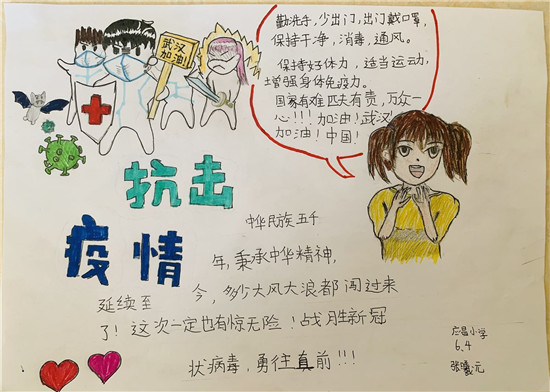 武汉
加油!
勤洗手,少出门,出门戴口罩,
保持干净,消毒,通风。
保持好体力,适当运动,
增强身体免疫力。
国家有难匹夫有责,万众一
心!!!加油!武汉!
加油!中国!
抗击
疫情
中华民族五千
年,秉承中华精神,
延续至
今,多少大风大浪都闯过来
了!这次一定也有惊无险!战胜新冠
状病毒,勇往直前!!!
应昌小学
6.4
张曦元